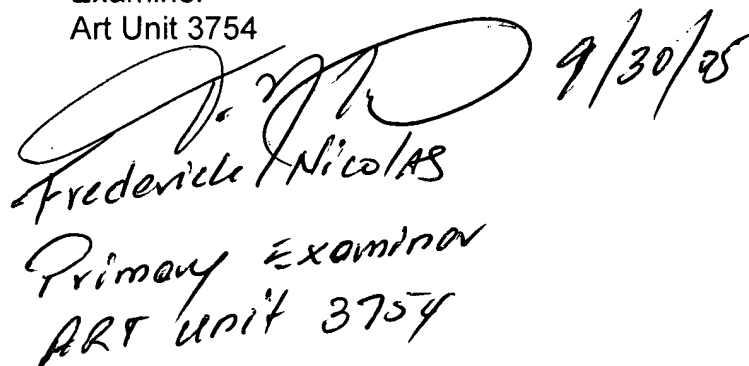 Art Unit 3754
9/30/05
Frederick Nicolas
Primary Examiner
ART Unit 3754